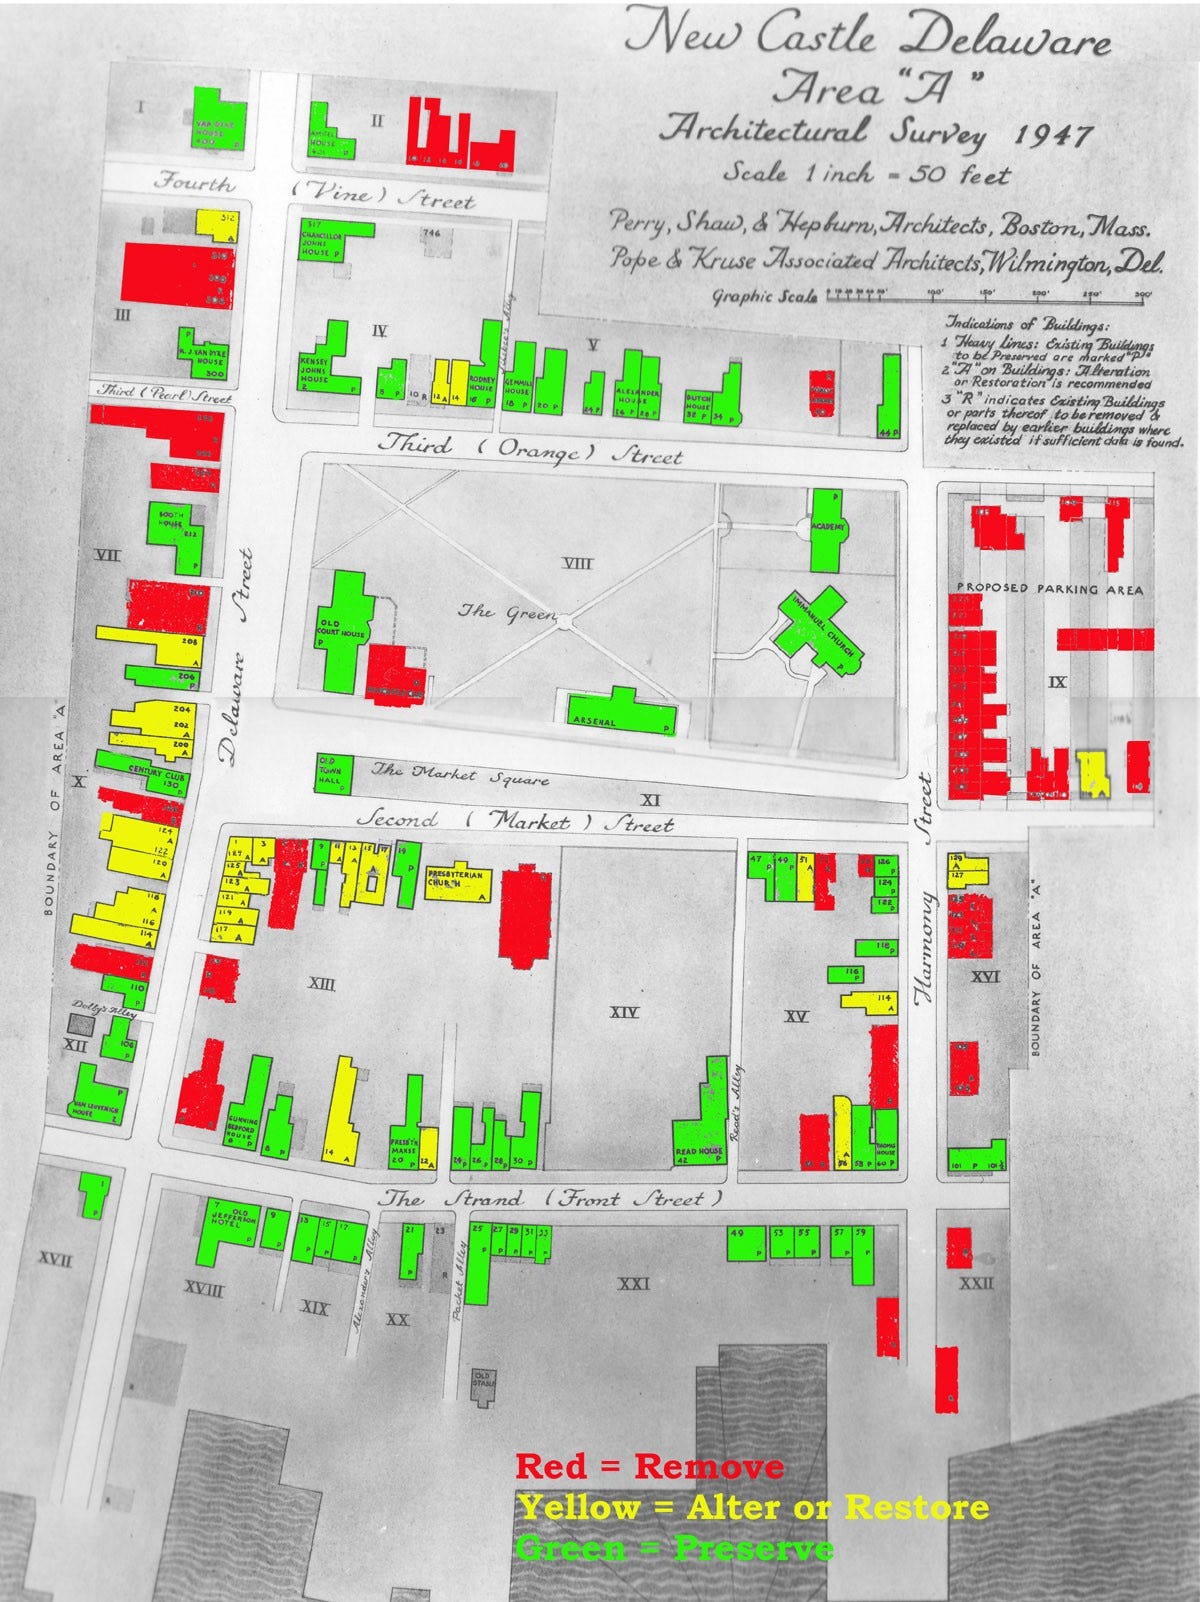 New Castle Delaware
Area "A"
Architectural Survey 1947
Scale 1 inch = 50 feet
Perry, Shaw, & Hepburn, Architects, Boston, Mass.
Pope & Kruse Associated Architects, Wilmington, Del.
Graphic Scale
100' 150' 200' 250' 300'
Indications of Buildings:
1 Heavy Lines: Existing Buildings
to be Preserved are marked "P"
2 "A" on Buildings: Alteration
or Restoration is recommended
3 "R" indicates Existing Buildings
or parts thereof to be removed &
replaced by earlier buildings where
they existed if sufficient data is found.
I
VAN DYKE
HOUSE
400 P
AMSTEL
HOUSE
401 P
II
Fourth (Vine) Street
312
A
III
317
CHANCELLOR
JOHNS
HOUSE P
746
P
K. J. VAN DYKE
HOUSE
300
IV
KENSEY
JOHNS
HOUSE
2 P
8 P
10 R
12 A
14
RODNEY
HOUSE
16 P
V
GEMMILL
HOUSE
18 P
20 P
24 P
ALEXANDER
HOUSE
26 P 28 P
DUTCH
HOUSE
32 P
34 P
44 P
Third (Pearl) Street
Third (Orange) Street
VII
BOOTH
HOUSE
212
P
208
A
206
P
204
202
A
200
A
Delaware Street
VIII
The Green
OLD
COURT HOUSE
P
ARSENAL P
P
ACADEMY
IMMANUEL CHURCH
P
PROPOSED PARKING AREA
IX
BOUNDARY OF AREA "A"
X
CENTURY CLUB
130 P
124
A
122
120
118
A
116
114
A
110
P
OLD
TOWN
HALL P
The Market Square
XI
Second (Market) Street
1
3
A
127 A
125
A
123
A
121
119
A
117
A
9
P
11
13
A
15
17
A
19
P
PRESBYTERIAN
CHURCH
A
XIII
XIV
47
P
49
P
51
A
126
P
124
P
122
P
118
P
116
P
114
A
XV
Harmony Street
129
A
127
XVI
BOUNDARY OF AREA "A"
Dolby's Alley
XII
106
P
P
VAN LEUVENIGH
HOUSE
2
GUNNING
BEDFORD
HOUSE
6 P
8 P
14 A
PRESBYT'N
MANSE
20 P
22 A
24 P
26 P
28 P
30 P
READ HOUSE
42 P
Read's Alley
A
56
58 P
THOMAS
HOUSE
60 P
101 P
The Strand (Front Street)
1
P
XVII
7
OLD
JEFFERSON
HOTEL
P
9
P
13
P
15
P
17
P
21
P
23
R
25
P
27
P
29
P
31
P
33
P
49
P
53
P
55
P
57
P
59
P
XVIII
XIX
Alexander's Alley
XX
Packet Alley
XXI
XXII
OLD
STABLE
Red = Remove
Yellow = Alter or Restore
Green = Preserve